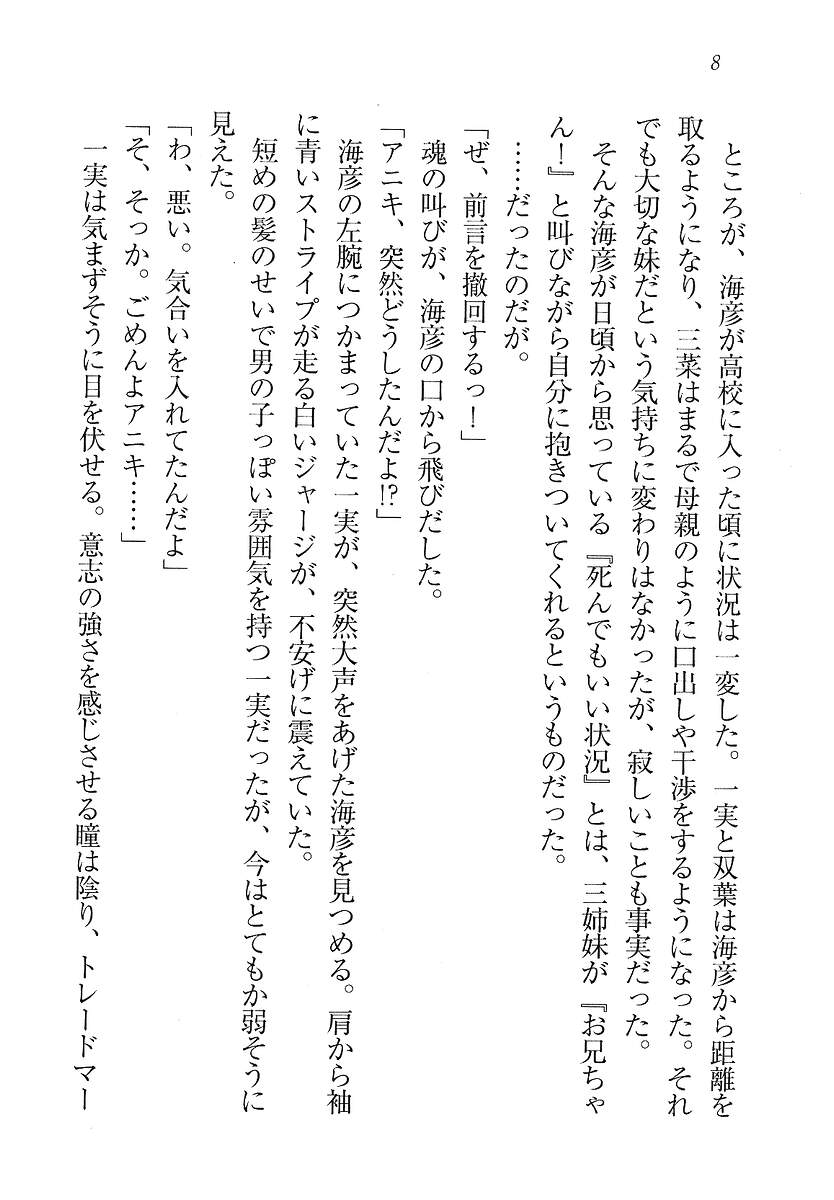 8
ところが、海彦が高校に入った頃に状況は一変した。一実と双葉は海彦から距離を
取るようになり、三菜はまるで母親のように口出しや干渉をするようになった。それ
でも大切な妹だという気持ちに変わりはなかったが、寂しいことも事実だった。
そんな海彦が日頃から思っている『死んでもいい状況』とは、三姉妹が『お兄ちゃ
ん！』と叫びながら自分に抱きついてくれるというものだった。
……だったのだが。
「ぜ、前言を撤回するっ！」
魂の叫びが、海彦の口から飛びだした。
「アニキ、突然どうしたんだよ!?」
海彦の左腕につかまっていた一実が、突然大声をあげた海彦を見つめる。肩から袖
に青いストライプが走る白いジャージが、不安げに震えていた。
短めの髪のせいで男の子っぽい雰囲気を持つ一実だったが、今はとてもか弱そうに
見えた。
「わ、悪い。気合いを入れてたんだよ」
「そ、そっか。ごめんよアニキ……」
一実は気まずそうに目を伏せる。意志の強さを感じさせる瞳は陰り、トレードマー